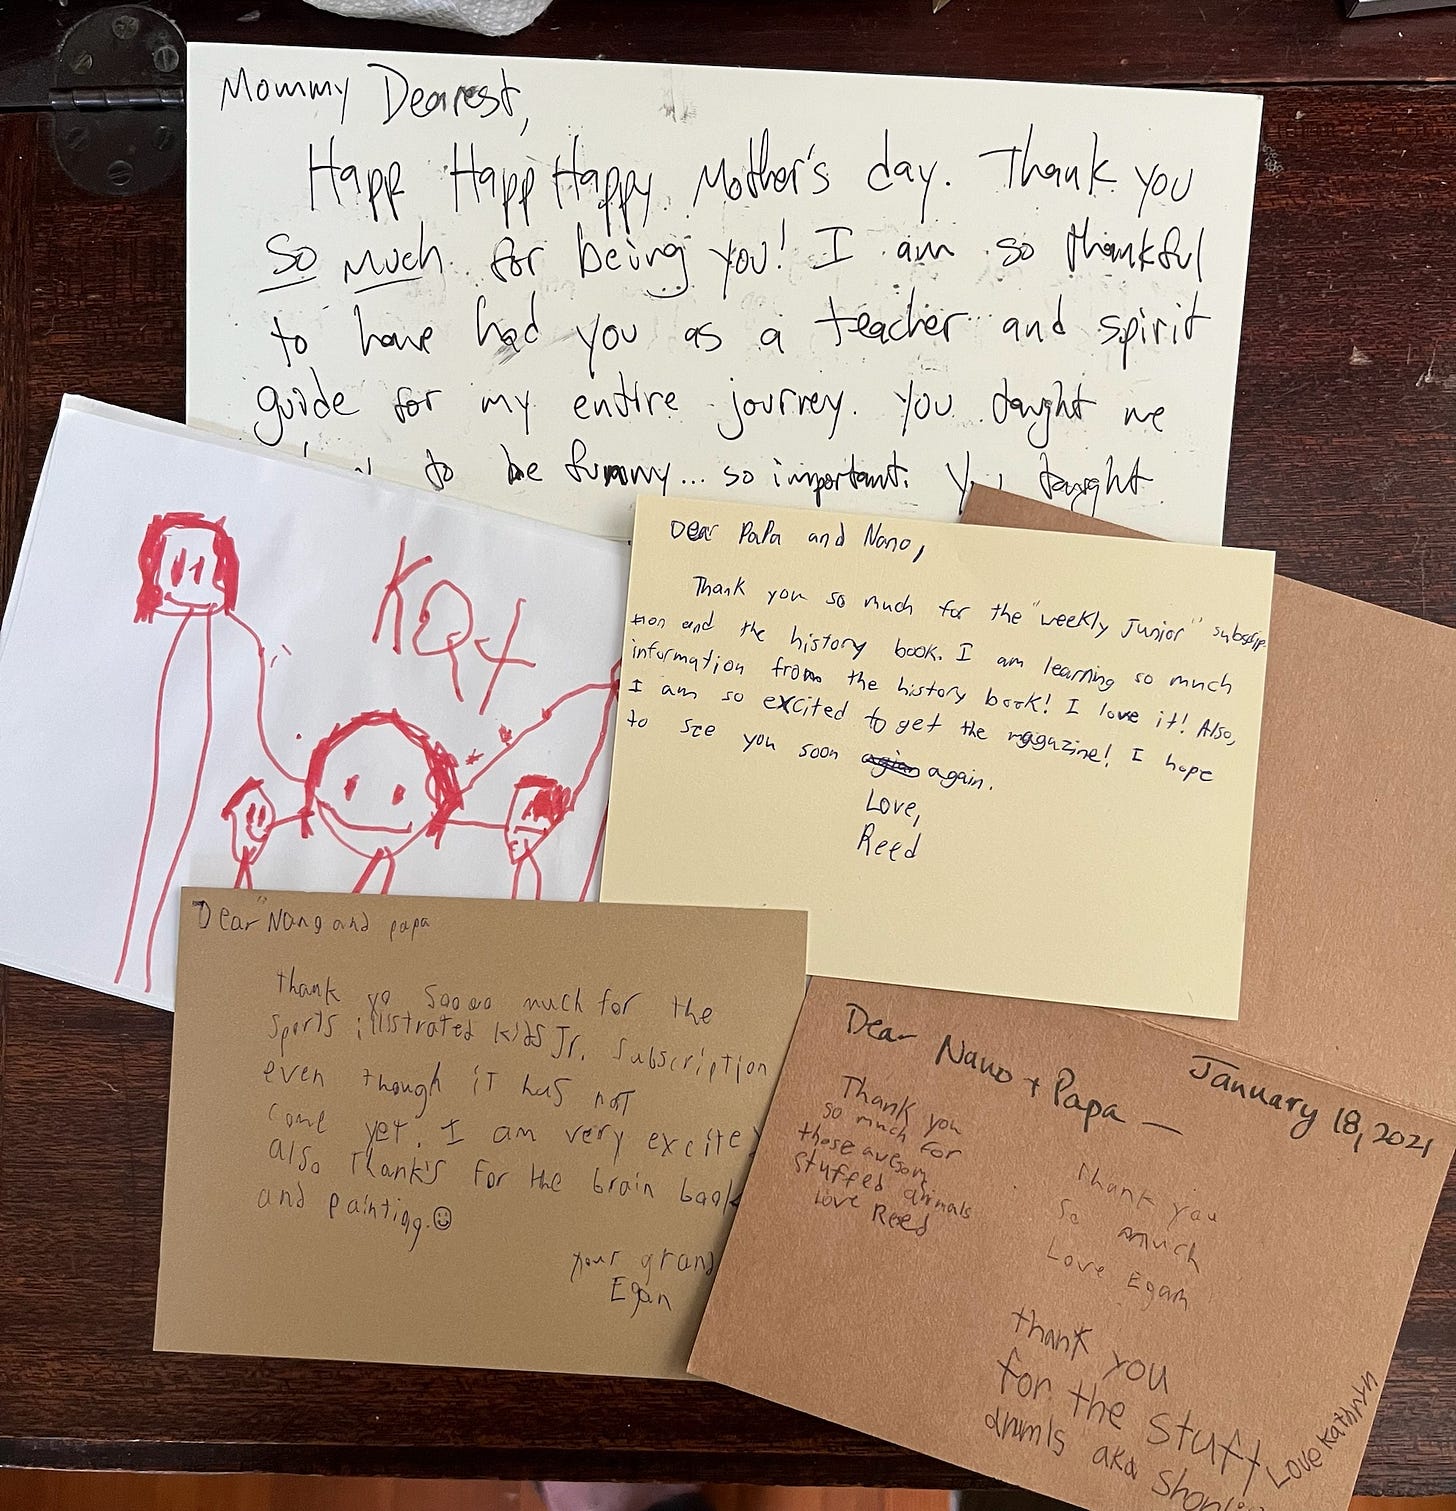 Mommy Dearest,
Happ Happ Happy Mother's day. Thank you
so much for being you! I am so thankful
to have had you as a teacher and spirit
guide for my entire journey. You taught me
to be funny... so important. You taught
Dear PaPa and Nano,
Thank you so much for the "weekly Junior" subscrip-
tion and the history book. I am learning so much
information from the history book! I love it! Also,
I am so excited to get the magazine! I hope
to see you soon again.
Love,
Reed
Dear Nano and papa
thank yo sooooo much for the
sports illistrated kids Jr. Subscription
even though it has not
come yet. I am very excited
also Thank's for the brain book
and painting.☺
your grand
Egan
Dear Nano + Papa —
January 18, 2021
Thank you
so much for
those awesom
stuffed animals
Love Reed
Thank you
So much
Love Egan
thank you
for the stuft
anmls aka
Love Kathryn